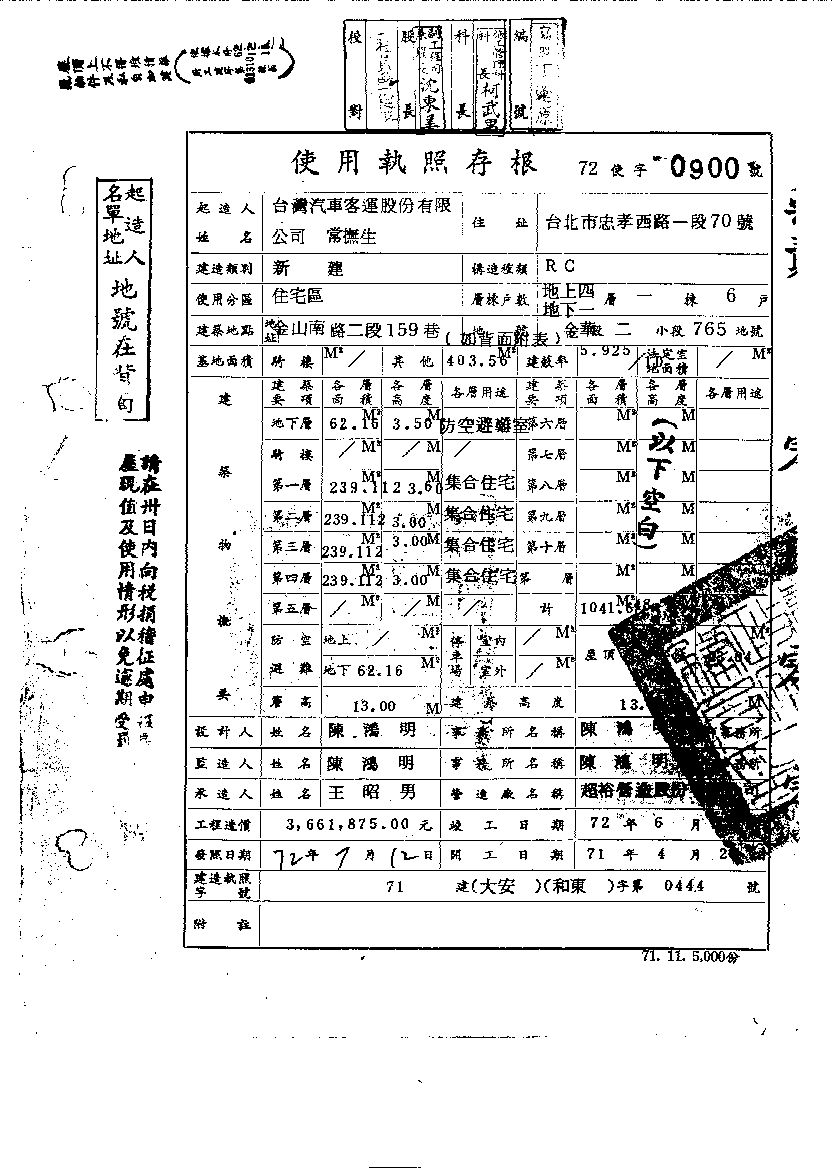 校對
股長
科長 柯武男
編號
使用執照存根 72 使字第 0900 號
起造人名單地址 地號在背面
起造人姓名 台灣汽車客運股份有限公司 常撫生 住址 台北市忠孝西路一段70號
建造類別 新建 構造種類 RC
使用分區 住宅區 層棟戶數 地上四地下一層 一棟 6戶
建築地點 地址 金山南路二段159巷 (如背面附表) 地號 金華段二小段765地號
基地面積 騎樓 M² / 其他 403.56 M² 建蔽率 5.925/10 法定空地面積 / M
建築物概要 建築要項 各層面積 各層高度 各層用途 建築要項 各層面積 各層高度 各層用途
地下層 62.16 M² 3.50 M 防空避難室 第六層 M² M
騎樓 / M² / M / 第七層 M² M
第一層 239.112 M² 3.60 M 集合住宅 第八層 M² M
第二層 239.112 M² 3.00 M 集合住宅 第九層 M² M
第三層 239.112 M² 3.00 M 集合住宅 第十層 M² M
第四層 239.112 M² 3.00 M 集合住宅 第 層 M² M
(以下空白)
第五層 / M² / M / 計 M²
防空避難 地上 / M² 停車場 室內 / M² 屋頂
地下 62.16 M² 室外 / M²
簷高 13.00 M 建築高度 13. M
設計人 姓名 陳鴻明 事務所名稱 陳鴻明 事務所
監造人 姓名 陳鴻明 事務所名稱 陳鴻明
承造人 姓名 王昭男 營造廠名稱 超裕營造股份
工程造價 3,661,875.00元 竣工日期 72年6月
發照日期 72年7月12日 開工日期 71年4月2
建造執照字號 71 建(大安)(和東)字第 0444 號
附註
71. 11. 5,000份
請在卅日內向稅捐稽征處申
屋現值及使用情形以免逾期受罰